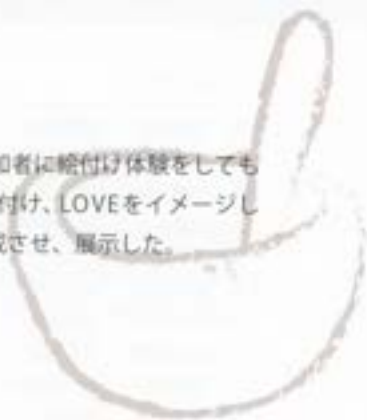 加者に絵付け体験をしても
付け、LOVEをイメージし
成させ、展示した。